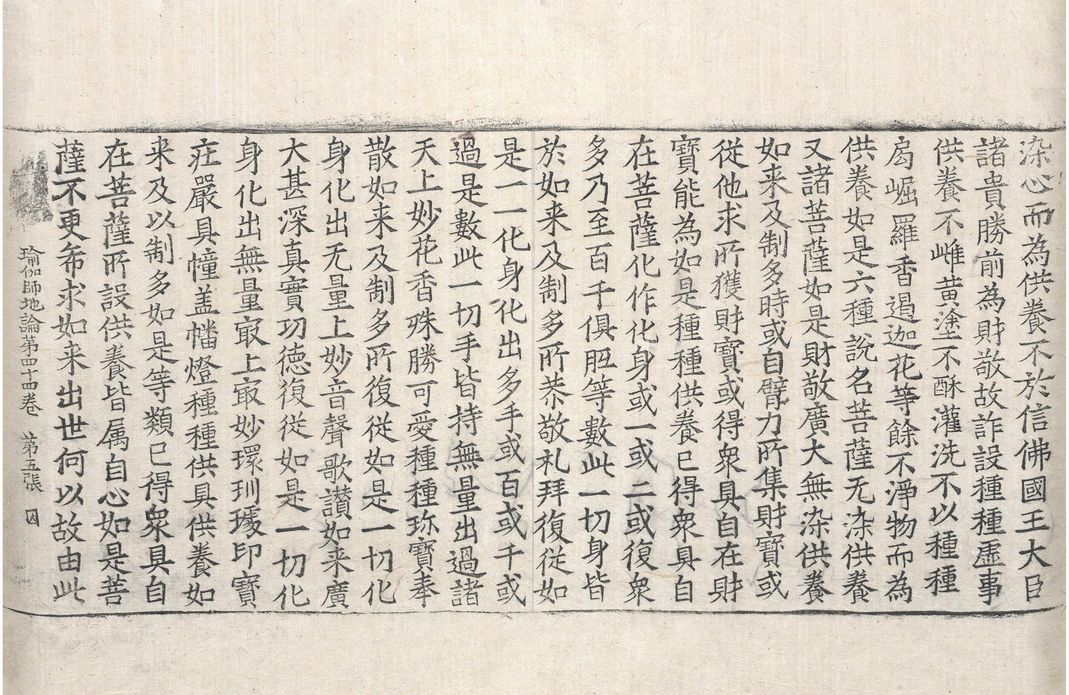 染心而為供養不於信佛國王大臣
諸貴勝前為財敬故詐設種種虛事
供養不雌黃塗不酥灌洗不以種種
局崛羅香遏迦花等餘不淨物而為
供養如是六種說名菩薩无染供養
又諸菩薩如是財敬廣大無染供養
如来及制多時或自臂力所集財寶或
從他求所獲財寶或得衆具自在財
寶能為如是種種供養已得衆具自
在菩薩化作化身或一或二或復衆
多乃至百千俱胝等數此一切身皆
於如来及制多所恭敬礼拜復從如
是一一化身化出多手或百或千或
過是數此一切手皆持無量出過諸
天上妙花香殊勝可愛種種珎寶奉
散如来及制多所復從如是一切化
身化出无量上妙音聲歌讃如来廣
大甚深真實功德復從如是一切化
身化出無量冣上冣妙環玔璩印寶
疘嚴具幢盖幡燈種種供具供養如
来及以制多如是等類已得衆具自
在菩薩所設供養皆属自心如是菩
薩不更希求如来出世何以故由此
瑜伽師地論第四十四卷 第五張 因